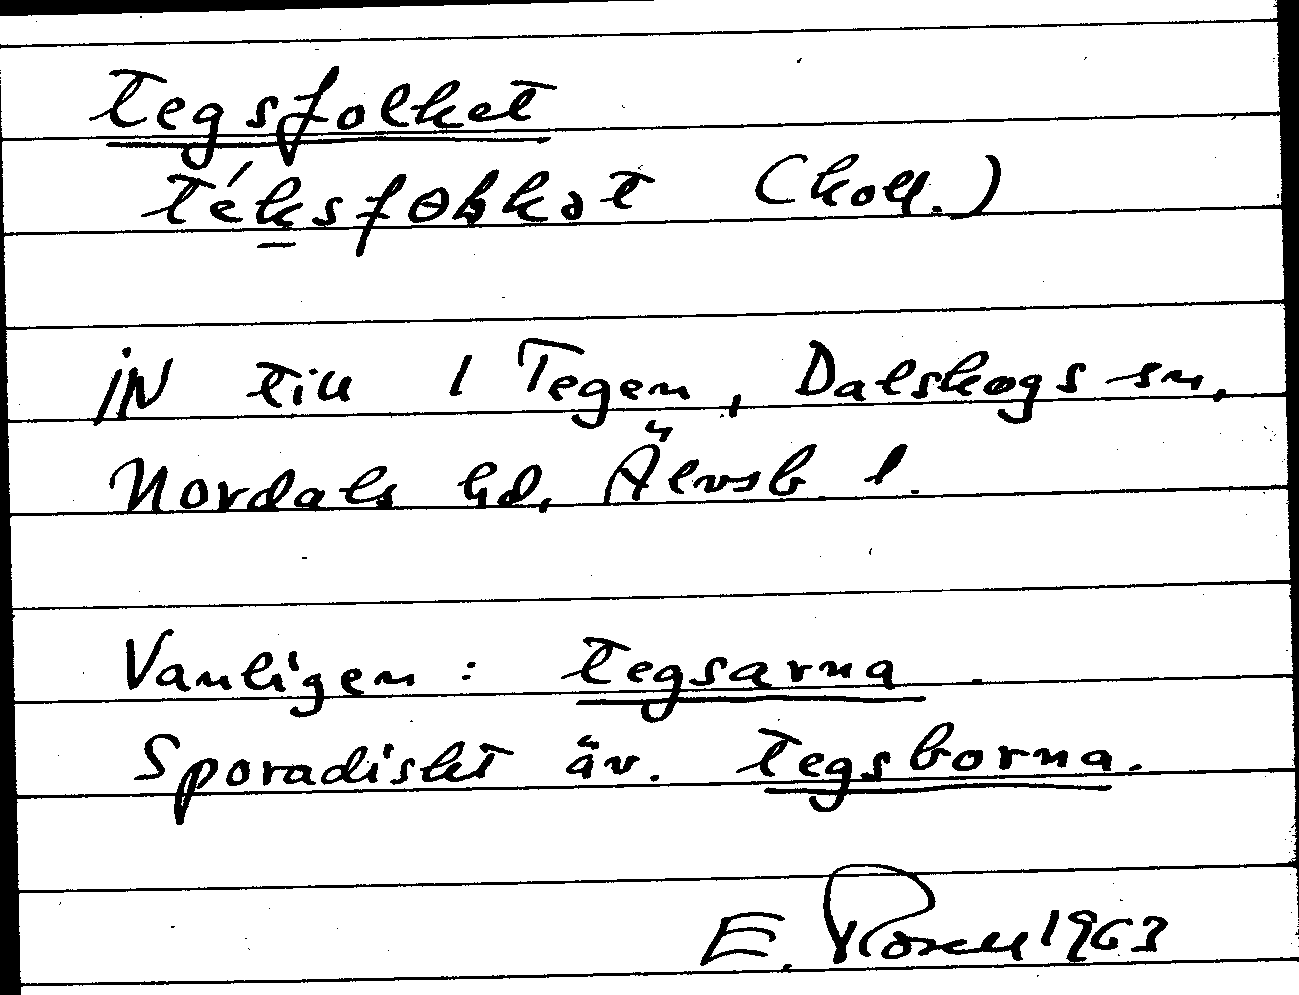 tegsfolket
téksfɵłkət (koll.)
iN till 1 Tegen, Dalskogs sn,
Nordals hd, Älvsb l.
Vanligen: tegsarna.
Sporadiskt äv. tegsborna.
E. Rosell 1963